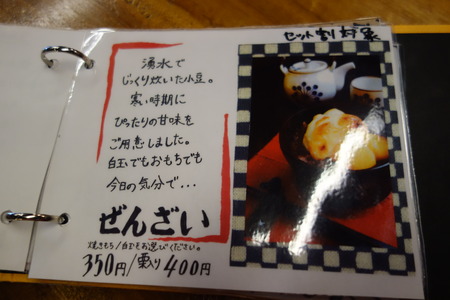 セット割対象
湧水で
じっくり炊いた小豆。
寒い時期に
ぴったりの甘味を
ご用意しました。
白玉でもおもちでも
今日の気分で...
ぜんざい
焼きもち/白玉お選びください。
350円/栗入り400円